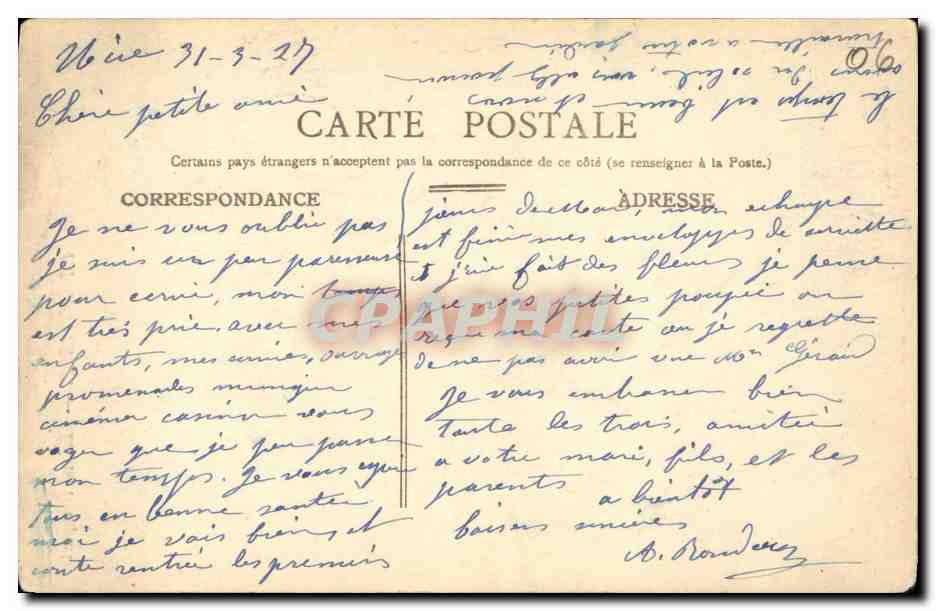 Nice 31-3-27
Chère petite amie
CARTE POSTALE
Certains pays étrangers n'acceptent pas la correspondance de ce côté (se renseigner à la Poste.)
CORRESPONDANCE
Je ne vous oublie pas
je suis un peu paresseuse
pour ecrire, mon temps
est très prie. avec mes
enfants, mes amies, ouvrage
promenades musique
cinéma casino vous
voyer que je peu passer
mon temps. Je vous espere
tous en bonne santer
moi je vais bien et
conte rentrée les premiers
ADRESSE
jours de mon echarpe
est finie mes enveloppes de serviette
et j'ai fait des fleurs je pense
que vos petites poupée on
reçue ma carte au je regrette
de ne pas avoir vue Mme Gérard
Je vous embrasse bien
toute les trois, amitié
a votre mari, fils, et les
parents a bientôt
baisers sincères
A.
le temps est beau et nous
avons du soleil, vous allez pouvoir
travaille a votre jardin
06
CPAPHIL